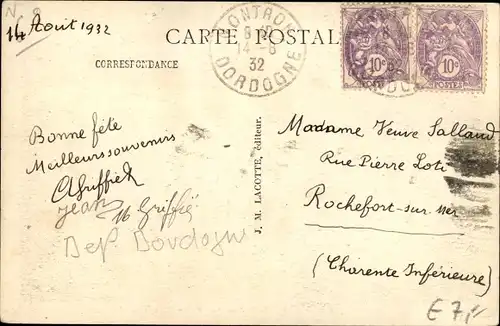 14 Août 1932
CARTE POSTALE
CORRESPONDANCE
NONTRON
14-8
32
DORDOGNE
10c
10c
POSTES
Bonne fête
Meilleurs souvenirs
Jean
Madame Veuve Salland
Rue Pierre Loti
Rochefort-sur-mer
(Charente Inférieure)
J. M. LACOTTE, éditeur.
Dep Dordogne
E 7,-